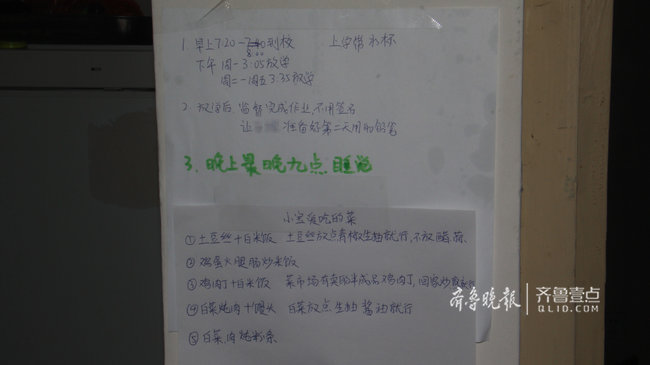 1. 早上7:20-7:40到校 上学带水杯
8:00
下午 周一 3:05放学
周二-周五 3:35放学
2. 放学后 监督完成作业,不用签名
让 准备好第二天用的铅笔
3. 晚上最晚九点睡觉
小宝爱吃的菜
①土豆丝+白米饭 土豆丝放点青椒生抽就行,不放醋、蒜
②鸡蛋火腿肠炒米饭
③鸡肉丁+白米饭 菜市场有卖的半成品鸡肉丁,回家炒
④白菜炖肉+馒头 白菜放点生抽酱油就行
⑤白菜肉炖粉条
齐鲁晚报 齐鲁壹点
QL1D.COM